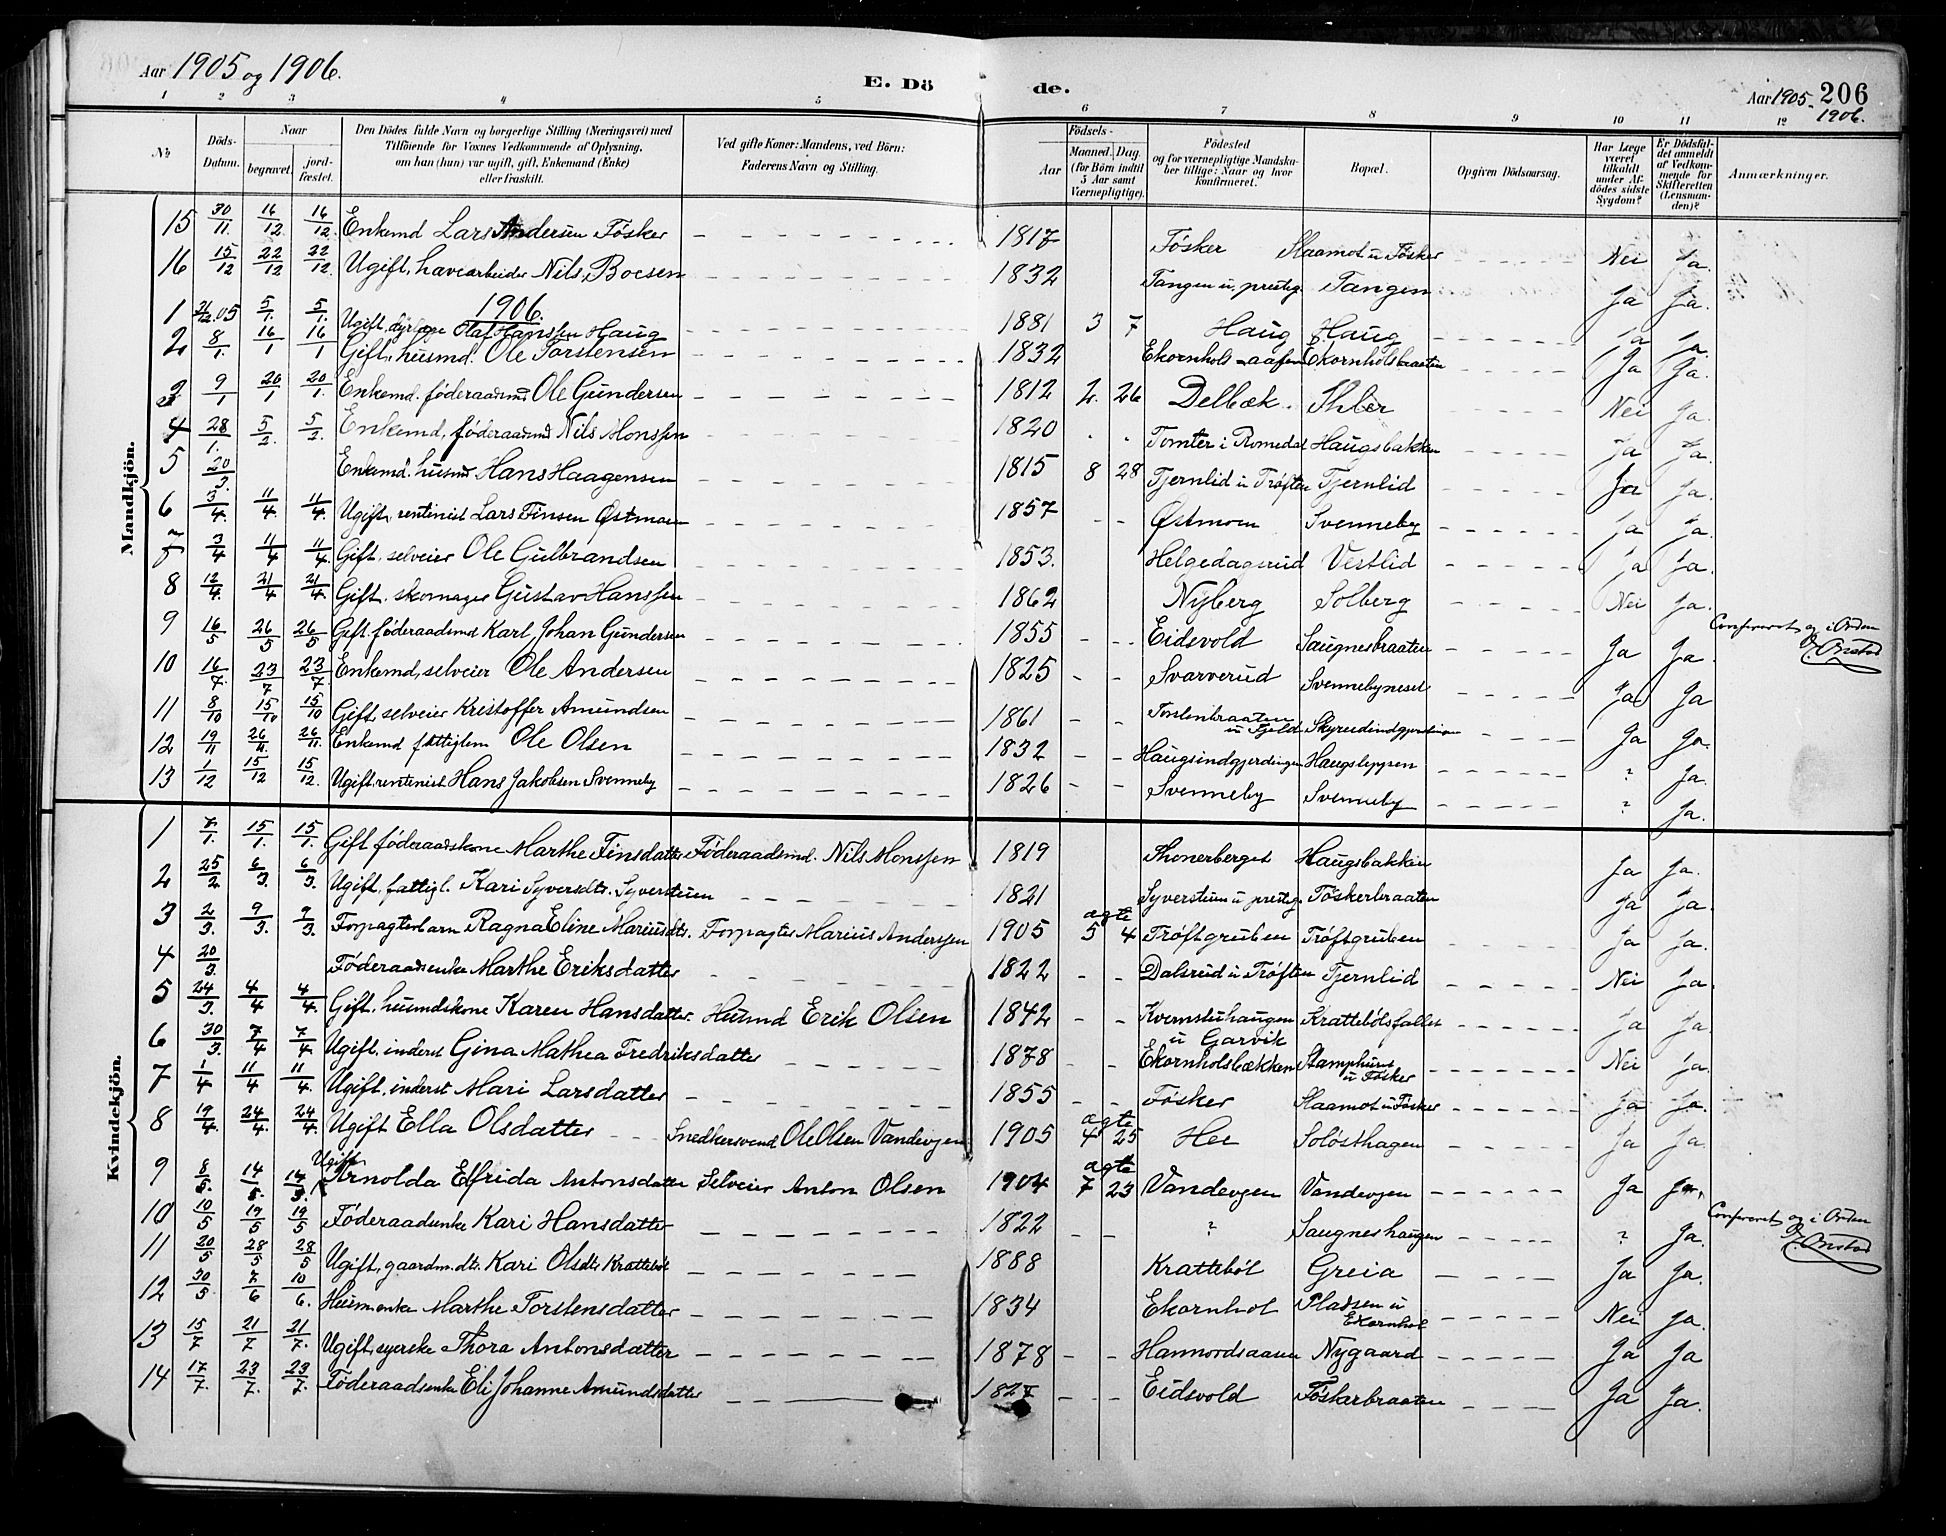 Aar 1905 og 1906.
E. Dö de.
Aar 1905. 206
1906.
1 2 3 4 5 6 7 8 9 10 11 12
No
Döds-Datum.
Naar begravet. jordfæstet.
Den Dödes fulde Navn og borgerlige Stilling (Næringsvei) med Tilföiende for Voxnes Vedkommende af Oplysning, om han (hun) var ugift, gift, Enkemand (Enke) eller fraskilt.
Ved gifte Koner: Mandens, ved Börn: Faderens Navn og Stilling.
Födsels-
Aar Maaned. Dag. (for Börn indtil 5 Aar samt Værnepligtige).
Födested og for værnepligtige Mandskaber tillige: Naar og hvor konfirmeret.
Bopæl.
Opgiven Dödsaarsag.
Har Læge været tilkaldt under Afdödes sidste Sygdom?
Er Dödsfaldet anmeldt af Vedkommende for Skifteretten (Lensmanden)?
Anmærkninger.
Mandkjön.
15 30/11 16/12 16/12 Enkemd Lars Andersen Fösker 1817 Fösker Slaamot u. Fösker Nei Ja.
16 15/12 22/12 22/12 Ugift, havearbeider Nils Boesen 1832 Tangen u. prestg. Tangen Ja Ja.
1906.
1 5/1. 5/1. Ugift, dyrlæge Olaf Hanssen Haug 1881 3 7 Haug Haug Ja Ja.
2 8/1. 16/1 16/1 Gift, husmd. Ole Torstensen 1832 Ja Ja.
3 9/1 20/1 20/1. Enkemd. föderaadsmd Ole Gundersen 1812 2. 26 Delbæk. Ihler Nei Ja.
4 28/1. 5/2. 5/2. Enkemd, föderaadsmd Nils Monssen 1820 Tomter i Romedal Haugsbakken Ja Ja.
5 20/3. Enkemd. husmd Hans Haagensen 1815 8 28 Tjernlid u Tröften Tjernlid Ja Ja.
6 3/4. 11/4. 11/4. Ugift, rentenist Lars Finsen Østmoen 1857 Østmoen Svenneby Ja Ja.
7 3/4 11/4 11/4. Gift, selveier Ole Gulbrandsen 1853. Helgedagsrud Vestlid Ja Ja.
8 12/4. 21/4 21/4 Gift. skomager Gustav Hanssen 1862 Nyberg Solberg Nei Ja.
9 16/5 26/5 26/5 Gift. föderaadsmd Karl Johan Gundersen 1855 Eidsvold Saugnesbraaten Ja Ja. Confereret og i Orden
10 16/7. 23/7 23/7. Enkemd, selveier Ole Andersen 1825 Svarverud Svennebyneset Ja Ja
11 8/10 15/10 15/10 Gift, selveier Kristoffer Amundsen 1861 Torstenbraaten u Fjeld Ja Ja.
12 19/11 26/11 26/11. Enkemd fattiglem Ole Olsen 1832 Haugsindgjerdingen Haugsleppen ? Ja.
13 1/12 15/12 15/12. Ugift, rentenist Hans Jakobsen Svenneby 1826 Svenneby Svenneby ? Ja.
Kvindekjön.
1 7/1. 15/1. 15/1. Gift föderaadskone Marthe Finsdatter Föderaadsmd. Nils Monssen 1819 Thonerberget Haugsbakken Ja Ja.
2 25/2. 6/3. 6/3. Ugift, fattigl. Kari Syversdtr. Syverstuen 1821 Syverstuen u prestg. Töskerbraaten Ja Ja.
3 2/3. 9/3. 9/3. Forpagterbarn Ragna Eline Mariusdtr. Forpagter Marius Anderssen 1905 ægte 5 4 Tröftgruben Tröftgruben Ja Ja.
4 20/3. Föderaadsenke Marthe Eriksdatter 1822 Dalsrud u Tröften Tjernlid Nei Ja.
5 24/3. 4/4 4/4. Gift, husmdskone Karen Hansdatter Husmd Erik Olsen 1842 Kvernstuhaugen u Garvik Krattebölsfallet Ja Ja.
6 30/3. 7/4 7/4. Ugift, inderst Gina Mathea Fredriksdatter 1878 Ekornholsbækken Stamphust u Fösker Nei Ja.
7 1/4 11/4. 11/4. Ugift, inderst Mari Larsdatter 1855 Fösker Slaamot u Fösker Ja Ja.
8 19/4. 24/4. 24/4. Ugift Ella Olsdatter Snedkersvend Ole Olsen Vandevjen 1905 ægte 4 25 Hee Solösthagen Ja Ja.
9 8/5. 14/5. 14/5. Ugift Arnolda Elfrida Antonsdatter Selveier Anton Olsen 1904 ægte 7 23 Vandevjen Vandevjen Ja Ja.
10 10/5 19/5 19/5 Föderaadsenke Kari Hansdatter 1822 ? Saugneshaugen ? Ja. Confereret og i Orden
11 20/5 28/5 28/5 Ugift, gaardm.dtr. Kari Olsdtr. Kratteböl 1888 Kratteböl Greia Ja Ja.
12 30/5 7/6 10/6. Husm.enke Marthe Torstensdatter 1834 Ekornhol Pladsen u Ekornhol Nei Ja.
13 15/7 21/7 21/7. Ugift, syerske Thora Antonsdatter 1878 Hanmordsaasen Nygaard Ja Ja
14 17/7. 23/7. 23/7. Föderaadsenke Eli Johanne Amundsdatter Eidsvold Föskerbraaten Ja Ja.